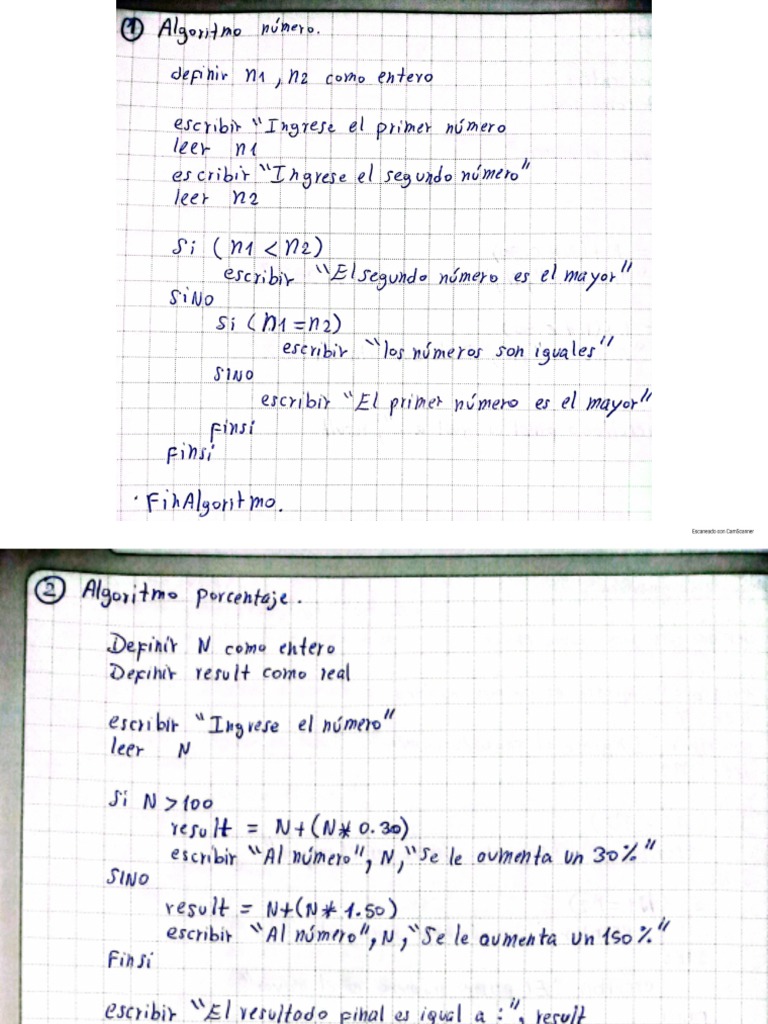 ① Algoritmo número.
definir n1, n2 como entero
escribir "Ingrese el primer número
leer n1
escribir "Ingrese el segundo número"
leer n2
Si (n1 < n2)
escribir "El segundo número es el mayor"
SiNO
Si (n1 = n2)
escribir "los números son iguales"
SINO
escribir "El primer número es el mayor"
Finsi
Finsi
FinAlgoritmo.
Escaneado con CamScanner
② Algoritmo porcentaje.
Definir N como entero
Definir result como real
escribir "Ingrese el número"
leer N
Si N > 100
result = N+(N* 0.30)
escribir "Al número", N, "Se le aumenta un 30%"
SINO
result = N+(N* 1.50)
escribir "Al número", N, "Se le aumenta un 150%"
Finsi
escribir "El resultado final es igual a :", result